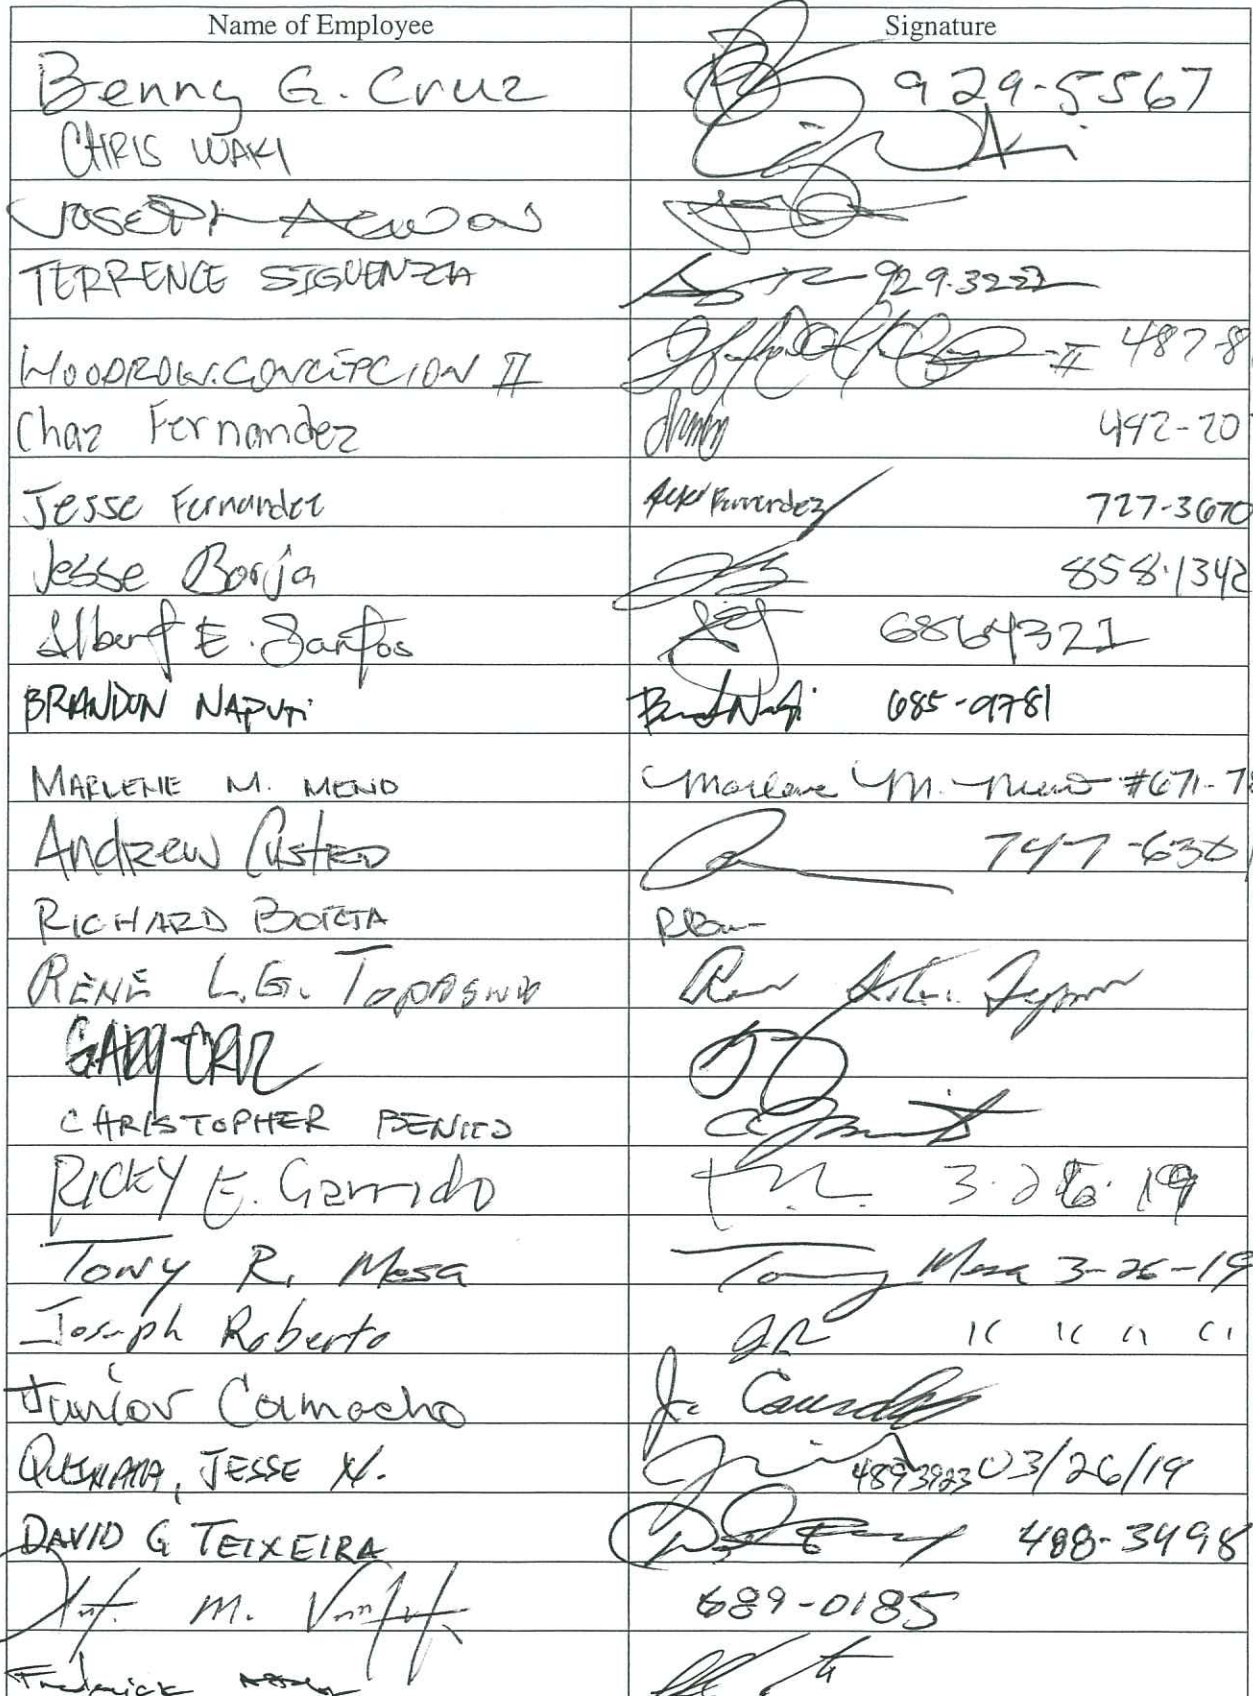 Name of Employee Signature
Benny G. Cruz 929-5567
CHRIS WAKI
JOSEPH
TERRENCE SIGUENZA 929.3222
WOODROW.CONCEPCION II II 487-8
Chaz Fernandez 442-20
Jesse Fernandez Fernandez 727-3670
Jesse Borja 858.1342
Albert E. Santos 6864321
BRANDON NAPUTI 685-9781
MARLENE M. MENO Marlene M. Meno #671-78
Andrew 747-6301
RICHARD BORJA
RENE L.G.
GARY CRUZ
CHRISTOPHER BENITO
RICKY E. Garrido 3.26.19
TONY R. Mesa Tony Mesa 3-26-19
Joseph Roberto JR " " " "
Junior Camacho Jr Camacho
QUINATA, JESSE 4893923 03/26/19
DAVID G TEIXEIRA 488-3498
M. 689-0185
Frederick